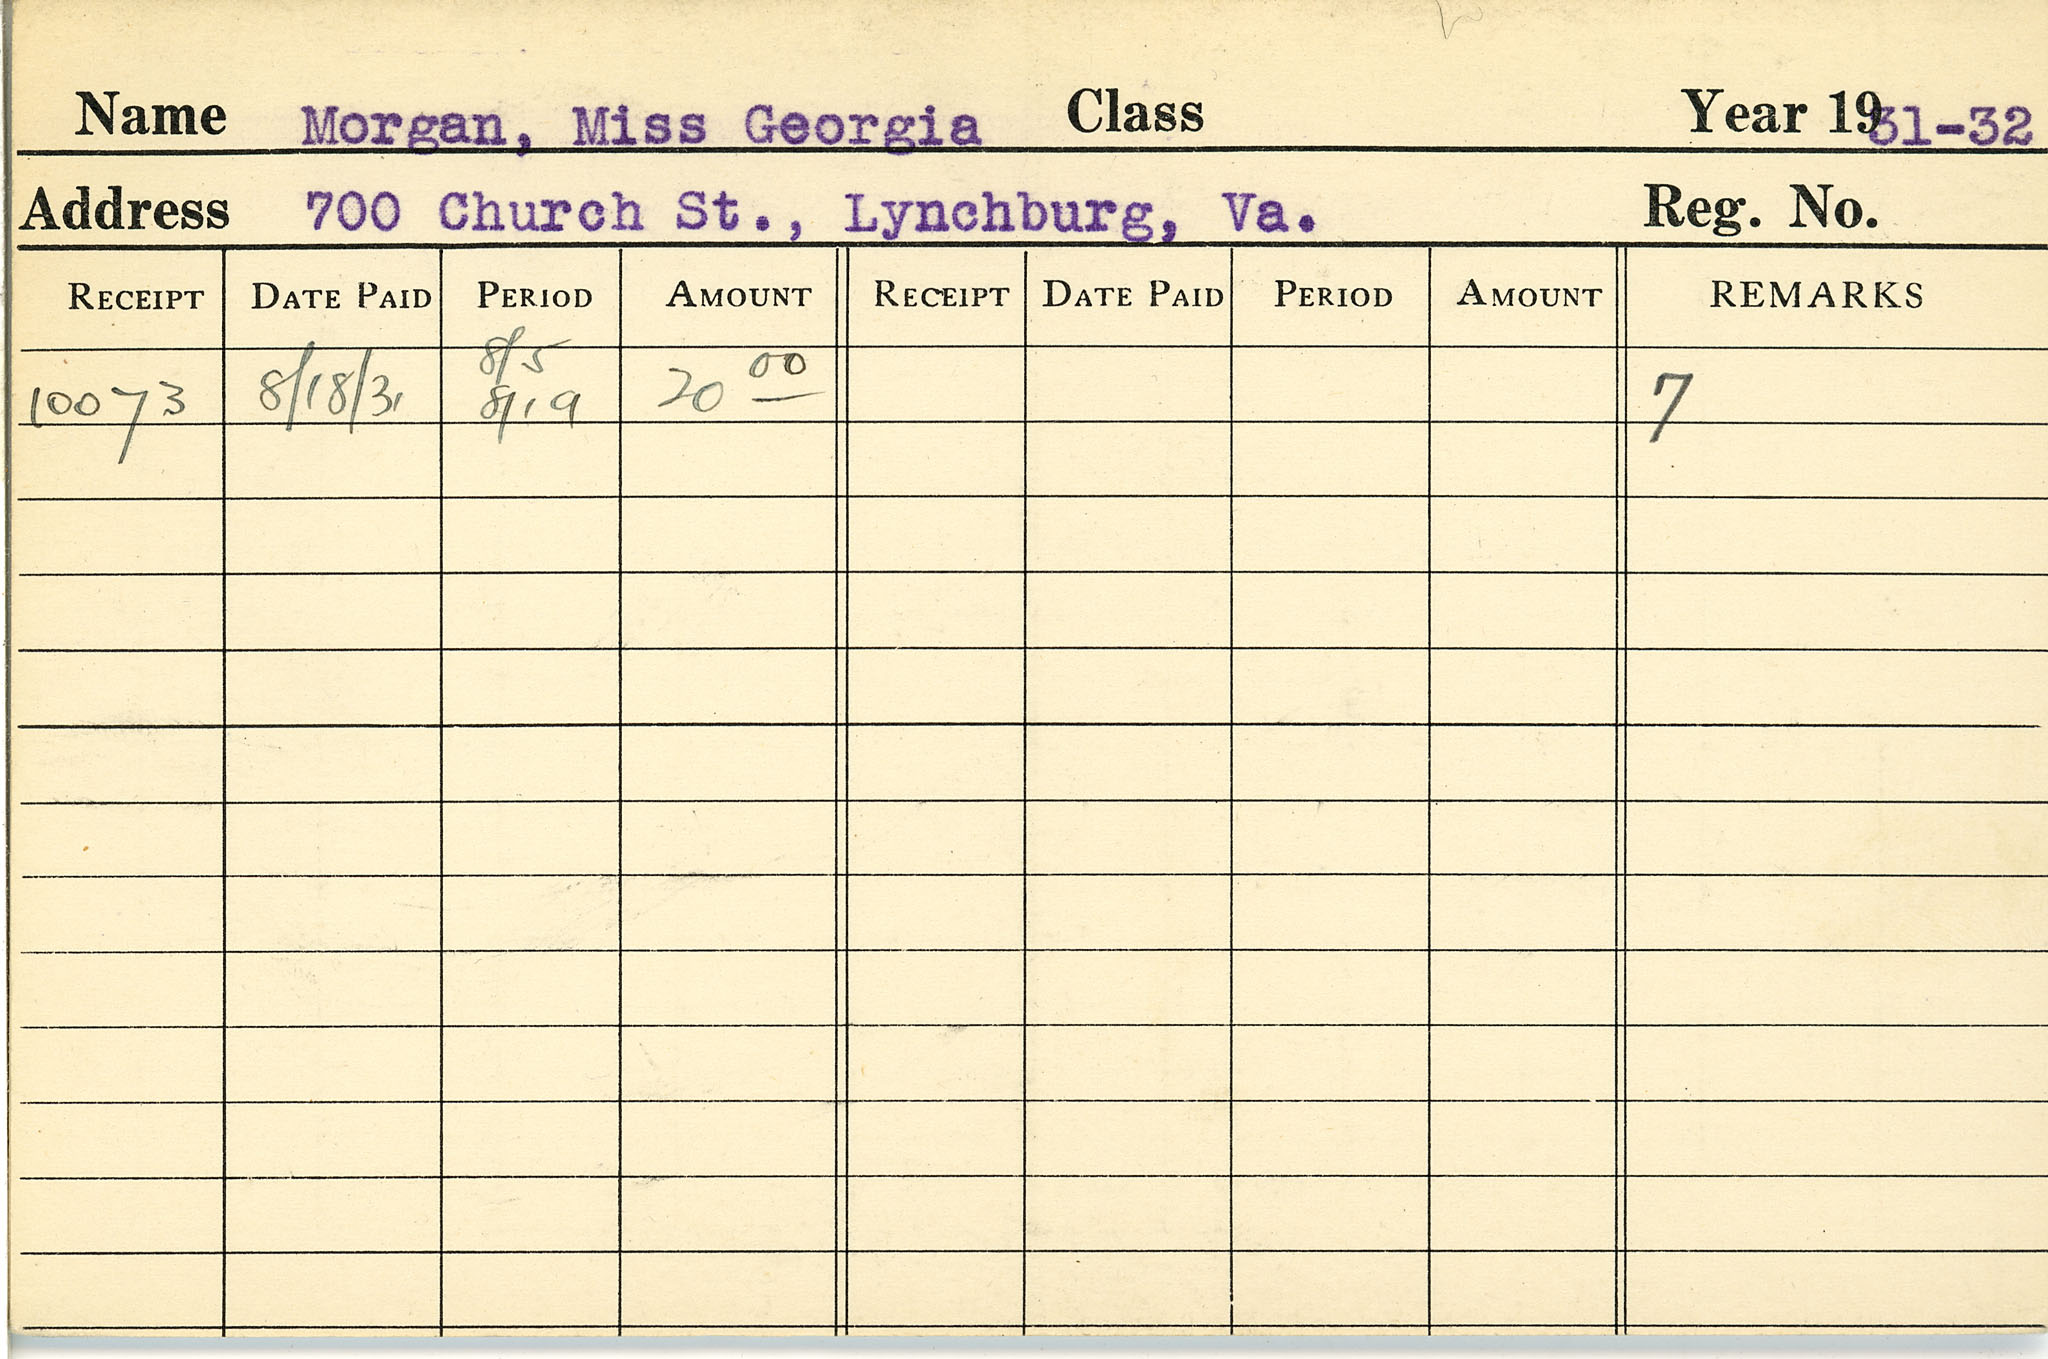 Name Morgan, Miss Georgia Class Year 1931-32
Address 700 Church St., Lynchburg, Va. Reg. No.
RECEIPT DATE PAID PERIOD AMOUNT RECEIPT DATE PAID PERIOD AMOUNT REMARKS
8/5
10073 8/18/31 8/19 20 00 7